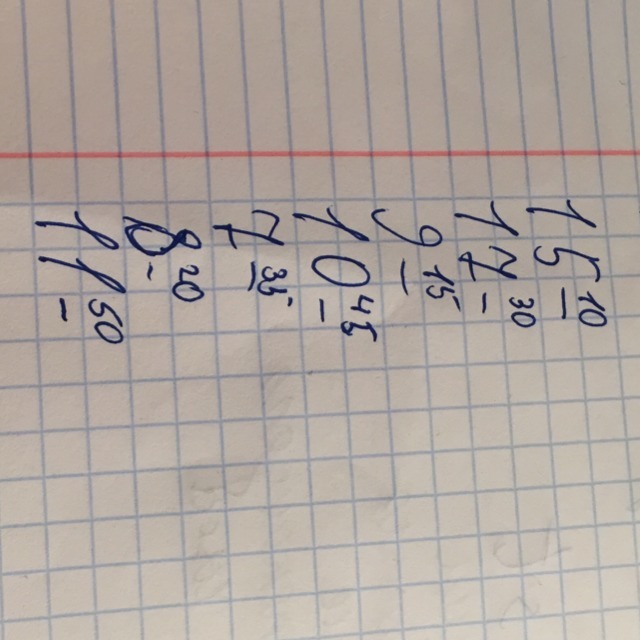 15 10
12 30
9 15
10 45
7 35
8 20
11 50